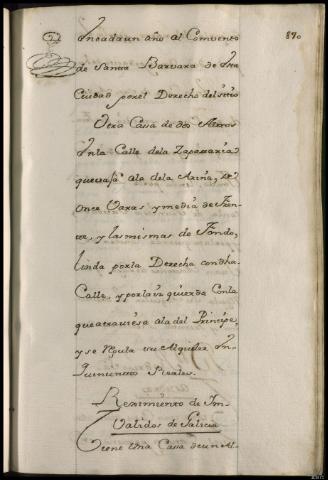 870
Incadaun año al Combento
de Santa Barvara de dha
Ciudad porel Derecho del sitio
Otra Casa de dos Altos
Inla Calle dela Zapateria
que vasa ala dela Arina, de
once Varas y media de Fren
te, y las mismas de Fondo,
linda porla Derecha con dha
Calle, y porla izquierda Conla
que atraviesa ala del Principe,
y se regula su Alquiler In
quinientos Reales.
Reximiento de In
Validos de Galicia
tiene Una Casa de un Al-